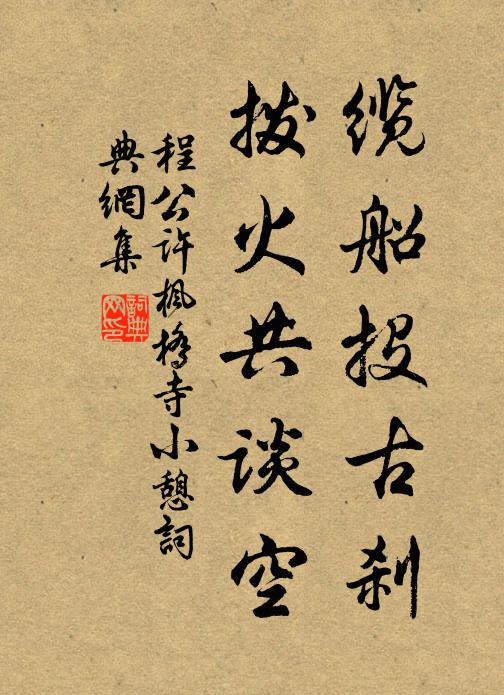 缆船投古刹
拨火共谈空
程公许枫桥寺小憩詞
典網集
詞典
网印